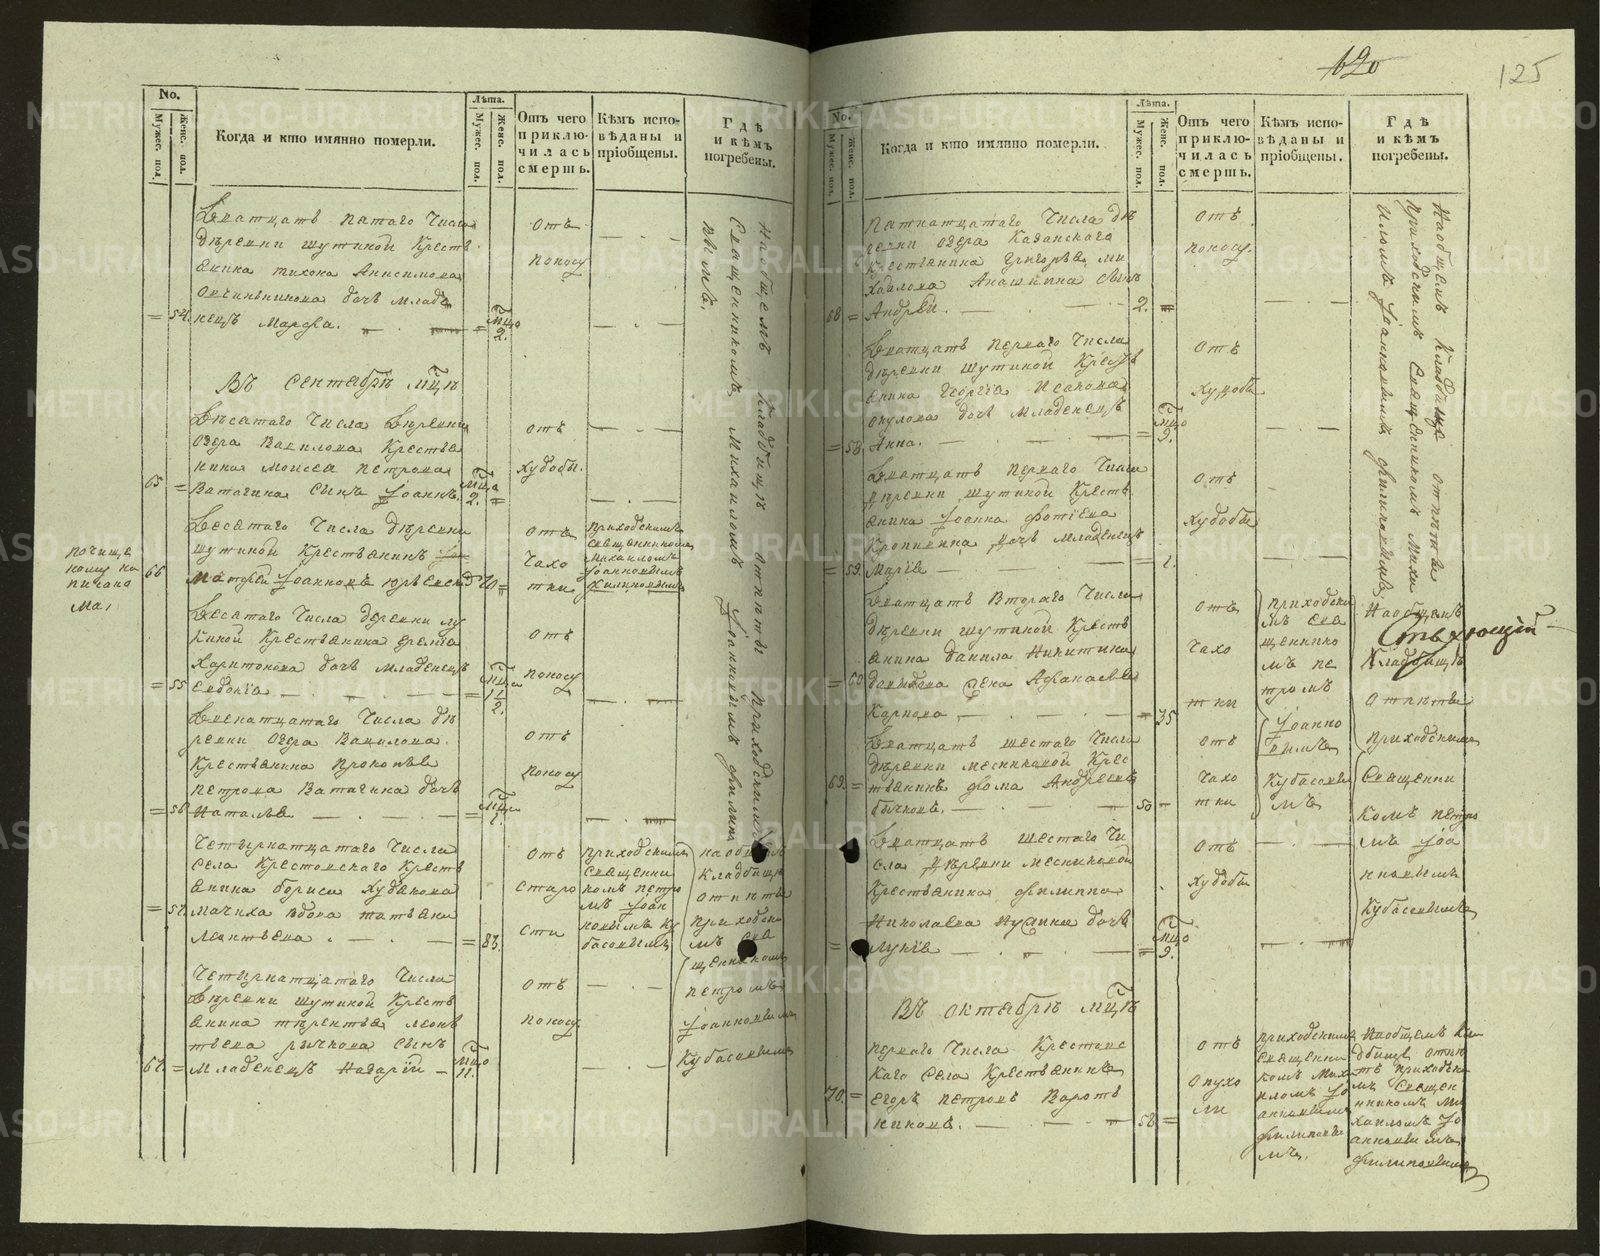 120
125
No.
Мужес. пол.
Женс. пол.
Когда и кто имянно померли.
Лѣта.
Мужес. пол.
Женс. пол.
Отъ чего приключилась смерть.
Кѣмъ исповѣданы и пріобщены.
Гдѣ и кѣмъ погребены.
Дватцать пятаго Числа
дѣревни шутиной Кресть
янина тихона Анисимова
Овчинникова дочь млада
= 54. нецъ Марѳа. = Мцо 2.
Отъ
поносу
На общемъ Кладбищѣ отпѣтъ приходскимъ
Священникомъ Михаиломъ Іоанновымъ Филип
повымъ.
Въ Сентябрѣ мцѣ
Десятаго Числа Деревни
озера Вавилова Крестья
нина Моисея петрова
65 = Ватагина сынъ Іоаннъ. Мца 2. =
Отъ
худобы.
Десятаго Числа дѣревни
шутиной Крестьянинъ
66 Матфей Іоанновъ юрьевъ 70 =
почище
ному на
писано
Ма,
Отъ
Чахо
тки
приходскимъ
священникомъ
Михаиломъ
Іоанновымъ
Филиповымъ
Десятаго Числа деревни лу
киной Крестьянина еремея
Харитонова дочь младенецъ
= 55 Евдокія = Мца 1/2
Отъ
поносу
Двенатцатаго Числа дѣ
ревни Озера Вавилова
Крестьянина прокопья
петрова Ватагина дочь
= 56 Наталья =
Отъ
поносу
Четырнатцатаго Числа
села Крестовскаго Кресть
янина бориса Худякова
= 57. мачиха вдова татьяна
леонтьева. = 83.
Отъ
старо
сти
приходскимъ
Священни
комъ петро
мъ Іоан
новымъ Ку
басовымъ
на общемъ
Кладбищѣ
отпѣта
приходски
мъ Свя
щенникомъ
петромъ
Іоанновымъ
Кубасовымъ
Четырнатцатаго Числа
Дѣревни шутиной Кресть
янина терентья леонь
тьева рычкова сынъ
67. = Младенецъ Назарій – Мцо 11.
Отъ
поносу
No.
Мужес. пол.
Женс. пол.
Когда и кто имянно померли.
Лѣта.
Мужес. пол.
Женс. пол.
Отъ чего приключилась смерть.
Кѣмъ исповѣданы и пріобщены.
Гдѣ и кѣмъ погребены.
Пятнатцатаго Числа дѣ
ревни озера Казанскаго
Крестьянина Григорья ми
хайлова Анашкина сынъ
68 = Андрей. 2. =
Отъ
поносу.
На общемъ Кладбищѣ отпѣты
приходскимъ Священникомъ Миха
иломъ Іоанновымъ Филиповымъ.
Дватцать перваго Числа
дѣревни шутиной Кресть
янина Георгія Исакова
окулова дочь Младенецъ
= 58. Анна. = Мцо 9.
Отъ
худобы
Дватцать перваго Числа
дѣревни шутиной Кресть
янина Іоанна фотіева
Кропинина дочь младенецъ
= 59. Марія = 1.
Отъ
худобы
Дватцать Втораго Числа
дѣревни шутиной Кресть
янина данила Никитина
= 60. давыдова жена Афанасья
Карпова = 75
Отъ
Чахо
тки
приходски
мъ Свя
щеннико
мъ пе
тромъ
Іоанно
вымъ
Кубасовы
мъ
На общемъ
Кладбищѣ
отпѣты
приходскимъ
Священни
комъ петро
мъ Іоа
нновымъ
Кубасовымъ
Дватцать шестаго Числа
дѣревни месниковой Крес
69. = тьянинъ фома Андреевъ
бычковъ. 50 –
Отъ
Чахо
тки
Дватцать шестаго Чи
сла дѣревни месниковой
Крестьянина филиппа
Николаева дочь
= Лукія = Мцо 9.
Отъ
худобы
Въ октябрѣ мцѣ
перваго Числа Крестовс
каго Села Крестьянинъ
70. = Егоръ петровъ Варот
никовъ. 58 =
Отъ
Опухо
ли
приходскимъ
священни
комъ Миха
иломъ Іо
анновымъ
Филиповы
мъ.
На общемъ Кла
дбищѣ отпѣ
тъ приходски
мъ Священ
никомъ Ми
хаиломъ Іо
анновымъ
Филиповымъ
METRIKI.GASO-URAL.RU